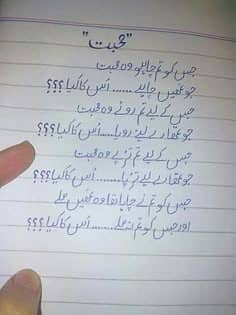 "محبت"
جس کو تم چاہو وہ محبت
جو تمھیں چاہے ...... اُس کا کیا؟؟؟
جس کے لیے تم روئے وہ محبت
جو تمھارے لیے رویا...... اُس کا کیا؟؟؟
جس کے لیے تم تڑپے وہ محبت
جو تمھارے لیے تڑپا...... اُس کا کیا؟؟؟
جس کو تم نے چاہا تھا وہ تمھیں ملے
اور جس کو تم نہ ملے ..... اُس کا کیا؟؟؟